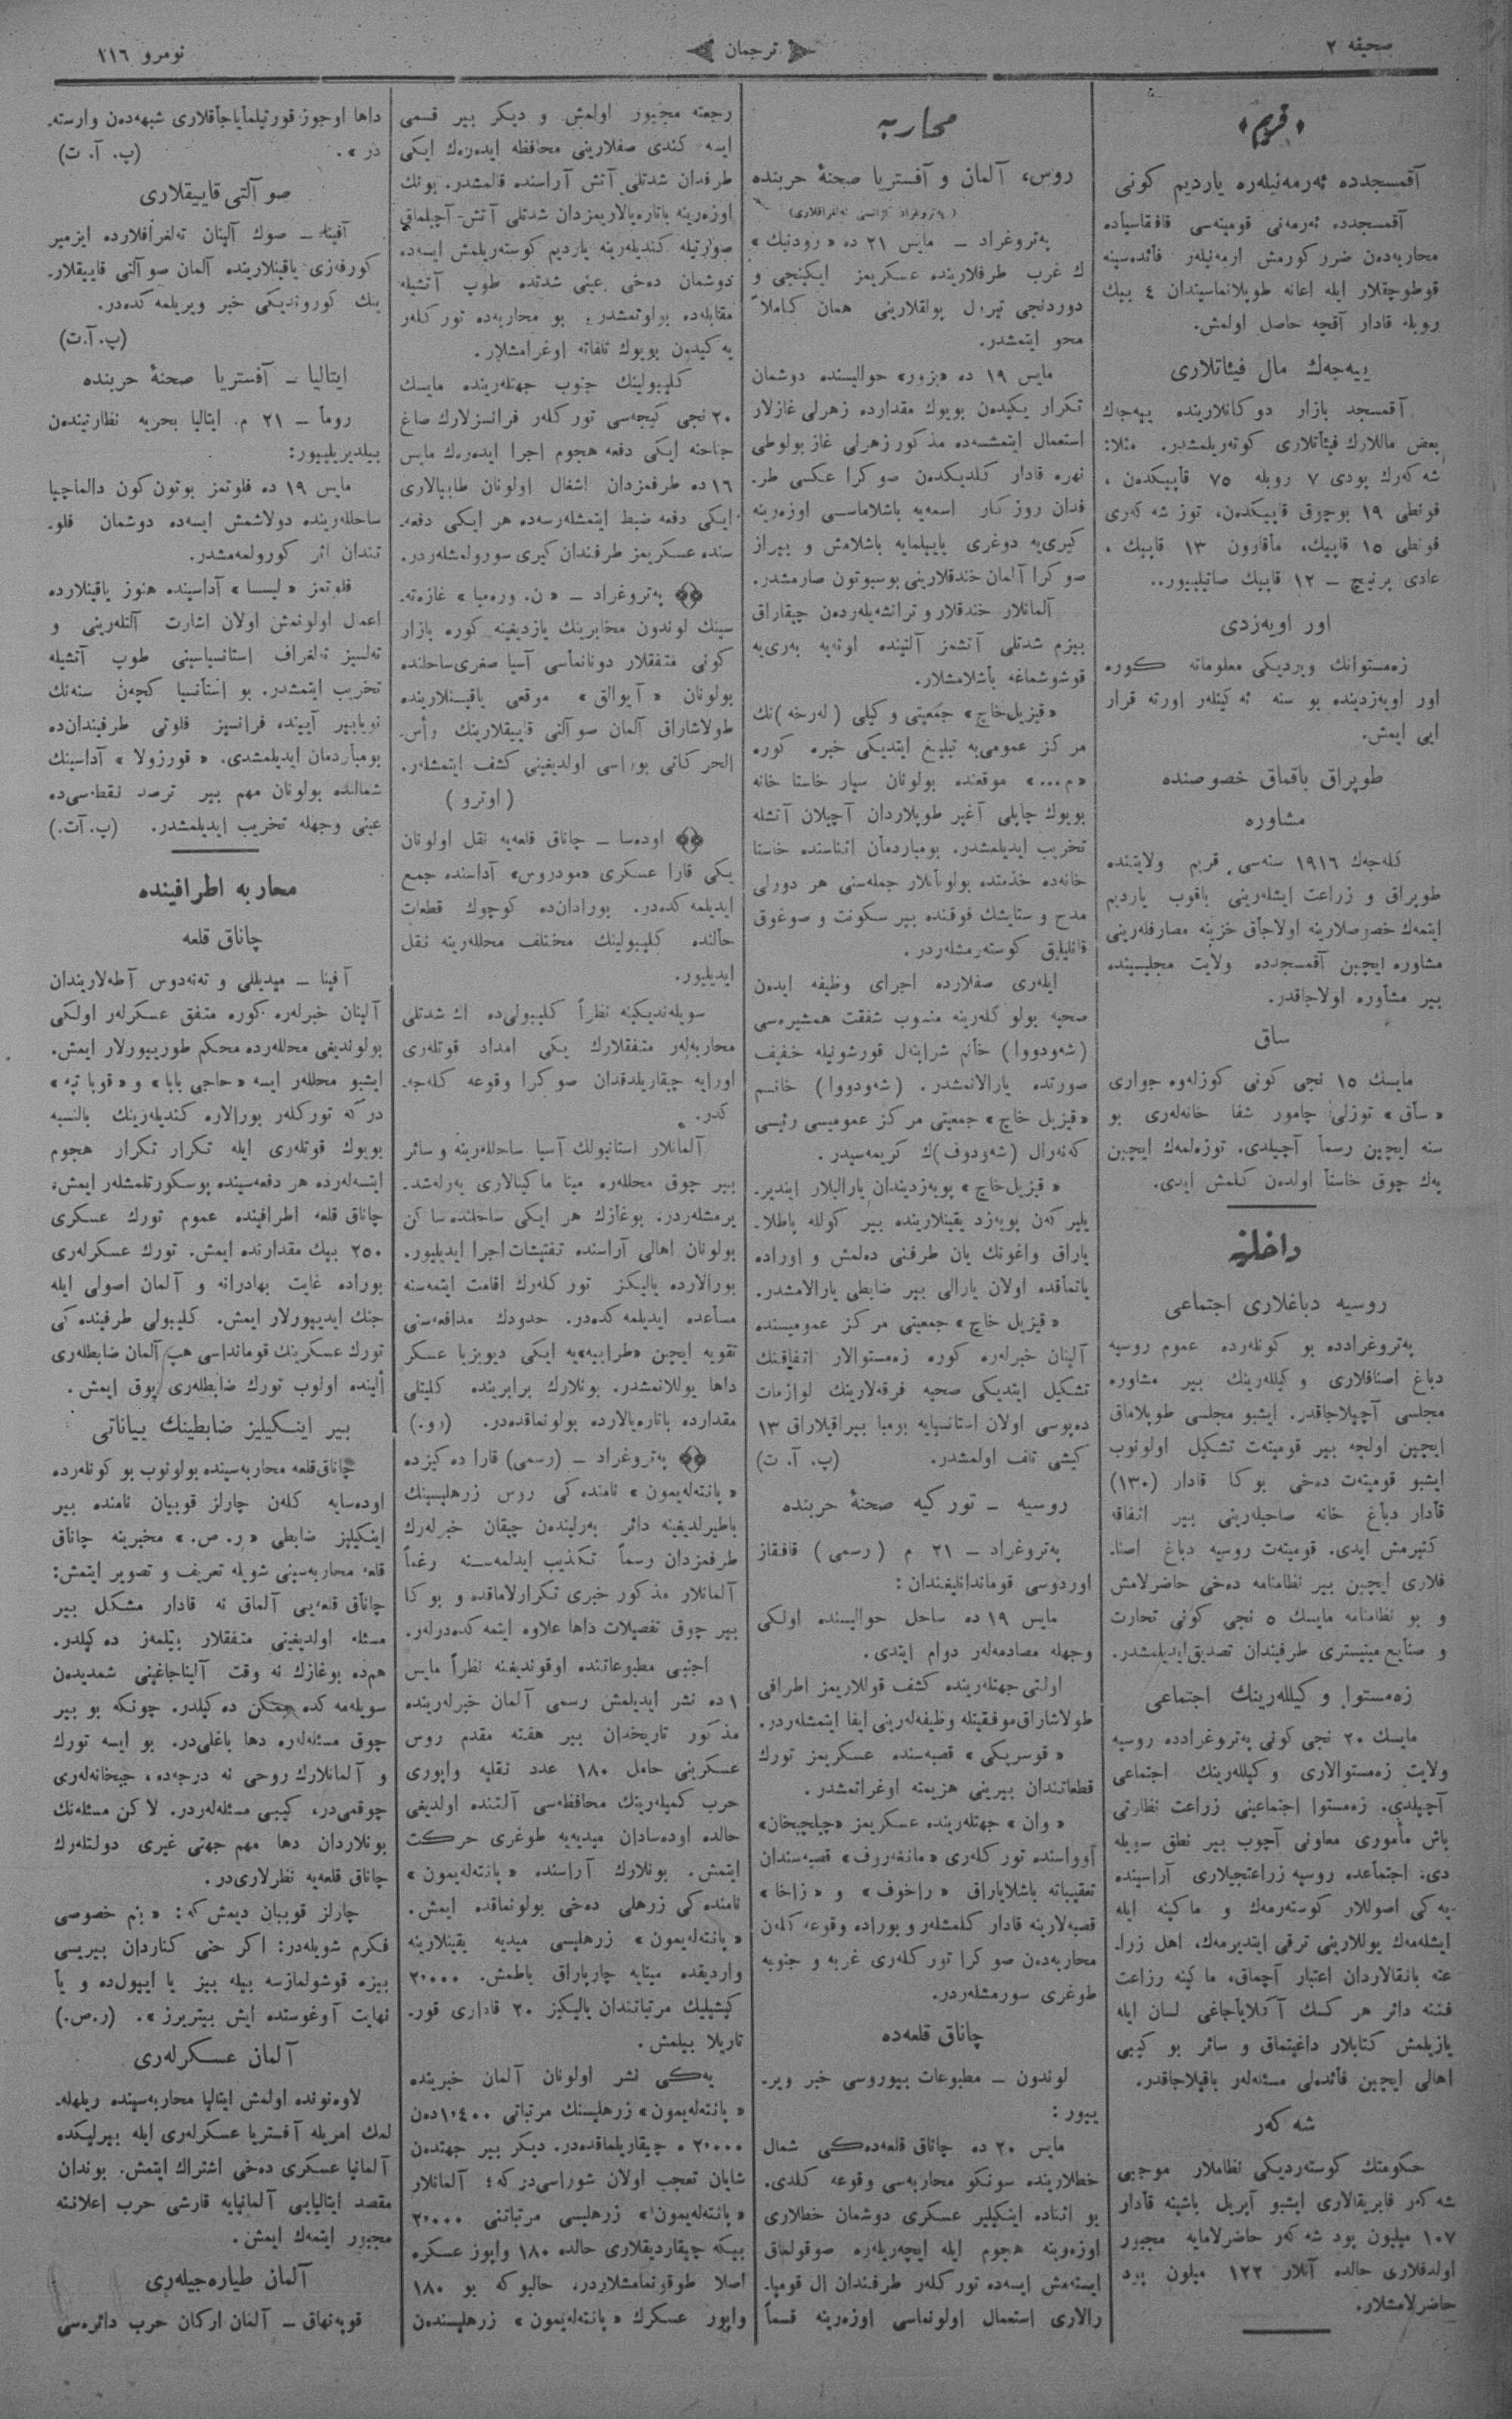 صحیفه ٢
ترجمان
نومرو ١١٦
«قریم»
آقمسجدده ئەرمەنیلەرە یاردیم کونی
آقمسجدده ئەرمەنی قومیتەسی قافقاسیاده
محاربەدەن ضرر کورمش ارمەنیلەر فائدەسینه
قوطوچقلار ایله اعانه طوپلانماسیندان ٤ بیڭ
روبله قادار آقچه حاصل اولمش.
ییەجەك مال فیئاتلاری
آقمسجد بازار دوکانلارینده ییەجەك
بعض ماللارك فیئاتلاری کوتەریلمشدر. مثلا:
شەکەرك پودی ٧ روبله ٧٥ قاپیکدەن،
فونطی ١٩ بوچوق قاپیکدەن، توز شەکەری
فونطی ١٥ قاپیك، ماقارون ١٣ قاپیك،
عادی پرنیچ — ١٢ قاپیك صاتیلییور..
اور اویەزدی
زەمستوانك ویردیکی معلوماته کوره
اور اویەزدینده بو سنه ئەکینلەر اورته قرار
ایی ایمش.
طوپراق باقماق خصوصنده
مشاوره
کلەجەك ١٩١٦ سنەسی قریم ولایتنده
طوپراق و زراعت ایشلەرینی باقوب یاردیم
ایتمەك خصوصلارینه اولاجاق خزینه مصارفلەرینی
مشاوره ایچین آقمسجدده ولایت مجلیسینده
بیر مشاوره اولاجاقدر.
ساق
مایسك ١٥ نجی کونی کوزلەوه جواری
«ساق» توزلی چامور شفا خانەلەری بو
سنه ایچین رسماً آچیلدی. توزەلمەك ایچین
پەك چوق خاستا اولدەن کلمش ایدی.
داخلیه
روسیه دباغلاری اجتماعی
پەتروغرادده بو کونلەرده عموم روسیه
دباغ اصنافلاری وکیللەرینك بیر مشاوره
مجلسی آچیلاجاقدر. ایشبو مجلسی طوپلاماق
ایچین اولجه بیر قومیتەت تشکیل اولونوب
ایشبو قومیتەت دەخی بوکا قادار (١٣٠)
قادار دباغ خانه صاحبلەرینی بیر اتفاقه
کتیرمش ایدی. قومیتەت روسیه دباغ اصنا-
فلاری ایچین بیر نظامنامه دەخی حاضرلامش
و بو نظامنامه مایسك ٥ نجی کونی تجارت
و صنایع مینیستری طرفیندان تصدیق ایدیلمشدر.
زەمستوا وکیللەرینك اجتماعی
مایسك ٢٠ نجی کونی پەتروغرادده روسیه
ولایت زەمستوالاری وکیللەرینك اجتماعی
آچیلدی. زەمستوا اجتماعینی زراعت نظارتی
باش مأموری معاونی آچوب بیر نطق سویله
دی. اجتماعده روسیه زراعتجیلاری آراسینده
یەکی اصوللار کوستەرمەك و ماکینه ایله
ایشلەمەك یوللارینی ترقی ایتدیرمەك، اهل زرا-
عته بانقالاردان اعتبار آچماق، ماکینه زراعت
فننه دائر هر کسك آکلایاجاغی لسان ایله
یازیلمش کتابلار داغیتماق و سائر بو کیبی
اهالی ایچین فائدەلی مسئلەلەر باقیلاجاقدر.
شەکەر
حکومتك کوستەردیکی نظاملار موجبی
شەکەر فابریقالاری ایشبو آپریل باشینه قادار
١٠٧ میلیون پود شەکەر حاضرلامایه مجبور
اولدقلاری حالده آنلار ١٢٢ میلون پود
حاضرلامشلار.
محاربه
روس، آلمان و آفستریا صحنۀ حربنده
پەتروغراد — مایس ٢١ ده «رودنیك»
ك غرب طرفلارینده عسکریمز ایکینجی و
دوردنجی تیرول پولقلارینی همان کاملاً
محو ایتمشدر.
مایس ١٩ ده «بزور» حوالیسنده دوشمان
تکرار یکیدەن بویوك مقدارده زهرلی غازلار
استعمال ایتمشسەده مذکور زهرلی غاز بولوطی
نهره قادار کلدیکدەن صوکرا عکسی طر-
فدان روزکار اسمەیه باشلاماسی اوزەرینه
کیریه دوغری یاییلمایه باشلامش و بیراز
صوکرا آلمان خندقلارینی بوسبوتون صارمشدر.
آلمانلار خندقلار و ترانشەیلەردەن چیقاراق
بیزم شدتلی آتشمز آلتینده اوتەیه بەریه
قوشوشماغه باشلامشلار.
«قیزیل خاچ» جمعیتی وکیلی (لەرخه)نك
مرکز عمومییه تبلیغ ایتدیکی خبره کوره
«م...» موقعنده بولونان سیار خاستا خانه
بویوك چاپلی آغیر طوپلاردان آچیلان آتشله
تخریب ایدیلمشدر. بومباردمان اثناسنده خاستا
خانەده خذمتده بولونانلار جملەسنی هر دورلی
مدح و ستایشك فوقنده بیر سکونت و صوغوق
قانلیلیق کوستەرمشلەردر.
ایلەری صفلارده اجرای وظیفه ایدەن
صحیه بولوکلەرینه منسوب شفقت همشیرەسی
(شەودووا) خانم شراپنەل قورشونیله خفیف
صورتده یارالانمشدر. (شەودووا) خانم
«قیزیل خاچ» جمعیتی مرکز عمومیسی رئیسی
کەنەرال (شەودوف)ك کریمەسیدر.
«قیزیل خاچ» پویەزدیندان یارالیلار ایندیر-
یلیرکەن پویەزد یقینلارینده بیر کولله پاطلا-
یاراق واغونك یان طرفنی دەلمش و اوراده
یاتماقده اولان یارالی بیر ضابطی یارالامشدر.
«قیزیل خاچ» جمعیتی مرکز عمومیسنده
آلینان خبرلەره کوره زەمستوالار اتفاقینك
تشکیل ایتدیکی صحیه فرقەلارینك لوازمات
دەپوسی اولان استانسیایه بومبا بیراقیلاراق ١٣
کیشی تلف اولمشدر. (پ. آ. ت)
روسیه — تورکیه صحنۀ حربنده
پەتروغراد — ٢١ م (رسمی) قافقاز
اوردوسی قوماندانلیغندان:
مایس ١٩ ده ساحل حوالیسنده اولکی
وجهله مصادمەلەر دوام ایتدی.
اولتی جهتلەرینده کشف قوللاریمز اطرافی
طولاشاراق موفقیتله وظیفەلەرینی ایفا ایتمشلەردر.
«قوسریکی» قصبەسنده عسکریمز تورك
قطعاتندان بیرینی هزیمته اوغراتمشدر.
«وان» جهتلەرینده عسکریمز «چیلچیخان»
آوواسنده تورکلەری «مانغەروف» قصبەسندان
تعقیباته باشلایاراق «راخوف» و «زاخا»
قصبەلارینه قادار کلمشلەر و بوراده وقوعه کلەن
محاربەدەن صوکرا تورکلەری غربه و جنوبه
طوغری سورمشلەردر.
چاناق قلعەده
لوندون — مطبوعات بیوروسی خبر ویر-
ییور:
مایس ٢٠ ده چاناق قلعەدەکی شمال
خطلارینده سونکو محاربەسی وقوعه کلدی.
بو اثناده اینکیلیز عسکری دوشمان خطلاری
اوزەرینه هجوم ایله ایچەریلەره صوقولماق
ایستەمش ایسەده تورکلەر طرفندان ال قومبا-
رالاری استعمال اولونماسی اوزەرینه قسماً
رجعته مجبور اولمش و دیکر بیر قسمی
ایسه کندی صفلارینی محافظه ایدەرەك ایکی
طرفدان شدتلی آتش آراسنده قالمشدر. بونك
اوزەرینه باتارەیالاریمزدان شدتلی آتش آچیلماق
صورتیله کندیلەرینه یاردیم کوستەریلمش ایسەده
دوشمان دەخی عینی شدتده طوپ آتشیله
مقابلەده بولونمشدر. بو محاربەده تورکلەر
یەکیدەن بویوك تلفاته اوغرامشلار.
کلیبولینك جنوب جهتلەرینده مایسك
٢٠ نجی کیجەسی تورکلەر فرانسزلارك صاغ
جناحنه ایکی دفعه هجوم اجرا ایدەرەك مایس
١٦ ده طرفمزدان اشغال اولونان طابیالاری
ایکی دفعه ضبط ایتمشلەرسەده هر ایکی دفعه-
سنده عسکریمز طرفندان کیری سورولمشلەردر.
پەتروغراد — «ن. ورەمیا» غازەته-
سینك لوندون مخابرینك یازدیغینه کوره بازار
کونی متفقلار دونانماسی آسیا صغری ساحلنده
بولونان «آیوالق» موقعی یاقینلارینده
طولاشاراق آلمان صو آلتی قاییقلارینك رأس-
الحرکاتی بوراسی اولدیغینی کشف ایتمشلەر.
(اوترو)
اودەسا — چاناق قلعەیه نقل اولونان
یکی قارا عسکری «مودروس» آداسنده جمع
ایدیلمەکدەدر. بورادان ده کوچوك قطعات
حالنده کلیبولینك مختلف محللەرینه نقل
ایدیلیور.
سویلەندیکینه نظراً کلیبولیده اڭ شدتلی
محاربەلەر متفقلارك یکی امداد قوتلەری
اورایه چیقاریلدقدان صوکرا وقوعه کلەجه-
کدر.
آلمانلار استانبولك آسیا ساحللەرینه و سائر
بیر چوق محللەره مینا ماکینالاری یەرلەشد-
یرمشلەردر. بوغازك هر ایکی ساحلنده ساکن
بولونان اهالی آراسنده تفتیشات اجرا ایدیلیور.
بورالارده یالیکز تورکلەرك اقامت ایتمەسنه
مساعده ایدیلمەکدەدر. حدودك مدافعەسنی
تقویه ایچین «طرابیه»یه ایکی دیویزیا عسکر
داها یوللانمشدر. بونلارك برابرینده کلیتلی
مقدارده باتارەیالارده بولونماقدەدر. (رو.)
پەتروغراد — (رسمی) قارا دەکیزده
«پانتەلەیمون» نامندەکی روس زرهلیسینك
باطیرلدیغینه دائر بەرلیندەن چیقان خبرلەرك
طرفمزدان رسماً تکذیب ایدلمەسنه رغماً
آلمانلار مذکور خبری تکرارلاماقده و بوکا
بیر چوق تفصیلات داها علاوه ایتمەکدەدرلەر.
اجنبی مطبوعاتنده اوقوندیغنه نظراً مایس
١ ده نشر ایدیلمش رسمی آلمان خبرلەرینده
مذکور تاریخدان بیر هفته مقدم روس
عسکرینی حامل ١٨٠ عدد نقلیه واپوری
حرب کمیلەرینك محافظەسی آلتنده اولدیغی
حالده اودەسادان میدیەیه طوغری حرکت
ایتمش. بونلارك آراسنده «پانتەلەیمون»
نامندەکی زرهلی دەخی بولونماقده ایمش.
«پانتەلەیمون» زرهلیسی میدیه یقینلارینه
واردیقده مینایه چارپاراق باطمش. ٢٠٠٠
کیشیلیك مرتباتندان یالیکز ٢٠ قاداری قور-
تاریلا بیلمش.
یەکی نشر اولونان آلمان خبرینده
«پانتەلەیمون» زرهلیسنك مرتباتی ١٤٠٠دەن
٢٠٠٠ ه چیقاریلماقدەدر. دیکر بیر جهتدەن
شایان تعجب اولان شوراسیدرکه؛ آلمانلار
«پانتەلەیمون» زرهلیسی مرتباتنی ٢٠٠٠
بیکه چیقاردیقلاری حالده ١٨٠ واپور عسکره
اصلا طوقونمامشلاردر، حالبوکه بو ١٨٠
واپور عسکرك «پانتەلەیمون» زرهلیسندەن
داها اوجوز قورتیلمایاجاقلاری شبهەدەن وارسته-
در». (پ. آ. ت)
صو آلتی قاییقلاری
آفینه — صوك آلینان تەلغرافلارده ایزمیر
کورفەزی یاقینلارینده آلمان صو آلتی قاییقلار-
ینك کوروندیکی خبر ویریلمەکدەدر.
(پ.آ.ت)
ایتالیا — آفستریا صحنۀ حربنده
روما — ٢١ م. ایتالیا بحریه نظارتیندەن
بیلدیریلییور:
مایس ١٩ ده فلوتمز بوتون کون دالماچیا
ساحللەرینده دولاشمش ایسەده دوشمان فلو-
تندان اثر کورولمەمشدر.
فلوتمز «لیسا» آداسینده هنوز یاقینلارده
اعمال اولونمش اولان اشارت آلتلەرینی و
تەلسیز تەلغراف استانسیاسینی طوپ آتشیله
تخریب ایتمشدر. بو استانسیا کچەن سنەنك
نویابیر آیینده فرانسیز فلوتی طرفیندان ده
بومباردمان ایدیلمشدی. «قورزولا» آداسینك
شمالنده بولونان مهم بیر ترصد نقطەسی ده
عینی وجهله تخریب ایدیلمشدر. (پ. آت.)
محاربه اطرافینده
چاناق قلعه
آفینا — میدیللی و تەنەدوس آطەلاریندان
آلینان خبرلەره کوره متفق عسکرلەر اولکی
بولوندیغی محللەرده محکم طورییورلار ایمش.
ایشبو محللەر ایسه «حاجی بابا» و «قوبا تپه»
درکه تورکلەر بورالاره کندیلەرینك بالنسبه
بویوك قوتلەری ایله تکرار تکرار هجوم
ایتسەلەرده هر دفعەسینده پوسکورتلمشلەر ایمش،
چاناق قلعه اطرافینده عموم تورك عسکری
٢٥٠ بیڭ مقدارنده ایمش. تورك عسکرلەری
بوراده غایت بهادرانه و آلمان اصولی ایله
جنك ایدییورلار ایمش. کلیبولی طرفیندەکی
تورك عسکرینك قومانداسی هپ آلمان ضابطلەری
ألینده اولوب تورك ضابطلەری یوق ایمش.
بیر اینکیلیز ضابطینك بیاناتی
چاناق قلعه محاربەسینده بولونوب بو کونلەرده
اودەسایه کلەن چارلز قوییان نامنده بیر
اینکیلیز ضابطی «ر. ص.» مخبرینه چاناق
قلعه محاربەسینی شویله تعریف و تصویر ایتمش:
چاناق قلعەیی آلماق نه قادار مشکل بیر
مسئله اولدیغینی متفقلار بیتلمەز دەکیلدر.
همده بوغازك نه وقت آلیناجاغینی شمدیدەن
سویلەمەکده ممکن دەکیلدر. چونکه بو بیر
چوق مسئلەلەره دها باغلیدر. بو ایسه تورك
و آلمانلارك روحی نه درجەده، جبخانەلەری
چوقمیدر، کیبی مسئلەلەردر. لاکن مسئلەنك
بونلاردان دها مهم جهتی غیری دولتلەرك
چاناق قلعەیه نظرلاریدر.
چارلز قوییان دیمش که: «بنم خصوصی
فکرم شویلەدر: اکر حتی کناردان بیریسی
بیزه قوشولمازسه بیله بیز یا ایپولده و یا
نهایت آوغوستده ایش بیتیریرز». (ر.ص.)
آلمان عسکرلەری
لاوەنونده اولمش ایتالیا محاربەسینده ریلهله-
لمك امریله آفستریا عسکرلەری ایله بیرلیکده
آلمانیا عسکری دەخی اشتراك ایتمش. بوندان
مقصد ایتالیایی آلمانیایه قارشی حرب اعلاننه
مجبور ایتمەك ایمش.
آلمان طیارەجیلەری
قوپەنهاق — آلمان ارکان حرب دائرەسی